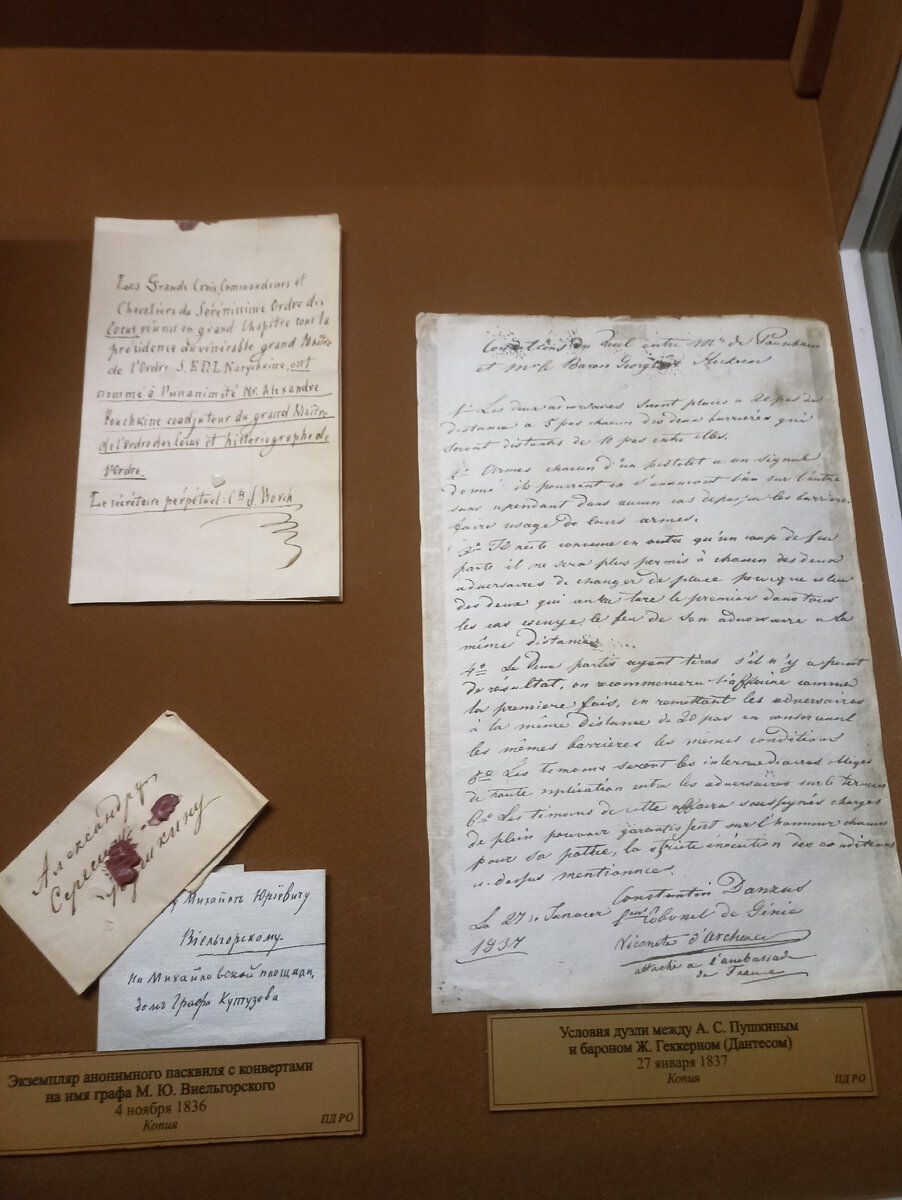 Les Grands Croix, Commandeurs et
Chevaliers du Sérénissime Ordre des
Cocus réunis en grand Chapitre sous la
présidence du vénérable grand Maître
de l'Ordre S. E. D. L. Narychkine, ont
nommé à l'unanimité Mr. Alexandre
Pouchkine coadjuteur du grand Maître
de l'ordre des Cocus et historiographe de
l'Ordre.
Le sécrétaire perpétuel: Cte J. Borch
Александру
Сергеичу
Пушкину
Михайлѣ Юрiевичу
Вiельгорскому.
На Михайловской площади,
домъ Графа Кутузова
Экземпляр анонимного пасквиля с конвертами
на имя графа М. Ю. Виельгорского
4 ноября 1836
Копия
ПД РО
Conditions du duel entre Mr de Pouchkin
et Mr le Baron Georges Heckeren
1º Les deux adversaires seront placés à 20 pas de
distance à 5 pas chacun des deux barrières qui
seront distantes de 10 pas entre elles.
2º Armés chacun d'un pistolet a un signal
donné ils pourront en s'avançant l'un sur l'autre
sans cependant dans aucun cas dépasser les barrières
faire usage de leurs armes.
3º Il reste convenu en outre qu'un coup de feu
parti il ne sera plus permis à chacun des deux
adversaires de changer de place pour que celui
des deux qui aura tiré le premier dans tous
les cas essuye le feu de son adversaire a la
même distance.
4º Les deux partis ayant tirés s'il n'y a point
de résultat, on recommencera l'affaire comme
la première fois, en remettant les adversaires
à la même distance de 20 pas en conservant
les mêmes barrières les mêmes conditions
5º Les temoins seront les intermediaires obligés
de toute explication entre les adversaires sur le terrain
6º Les témoins de cette affaire soussignés chargés
de plein pouvoir garantissent sur l'honneur chacun
pour sa partie, la stricte execution des conditions
ci-dessus mentionnées.
Constantin Danzas
Le 27 de Janvier
Lieut Colonel de Génie
1837
Vicomte d'Archiac
attaché a l'ambassade
de France
Условия дуэли между А. С. Пушкиным
и бароном Ж. Геккерном (Дантесом)
27 января 1837
Копия
ПД РО